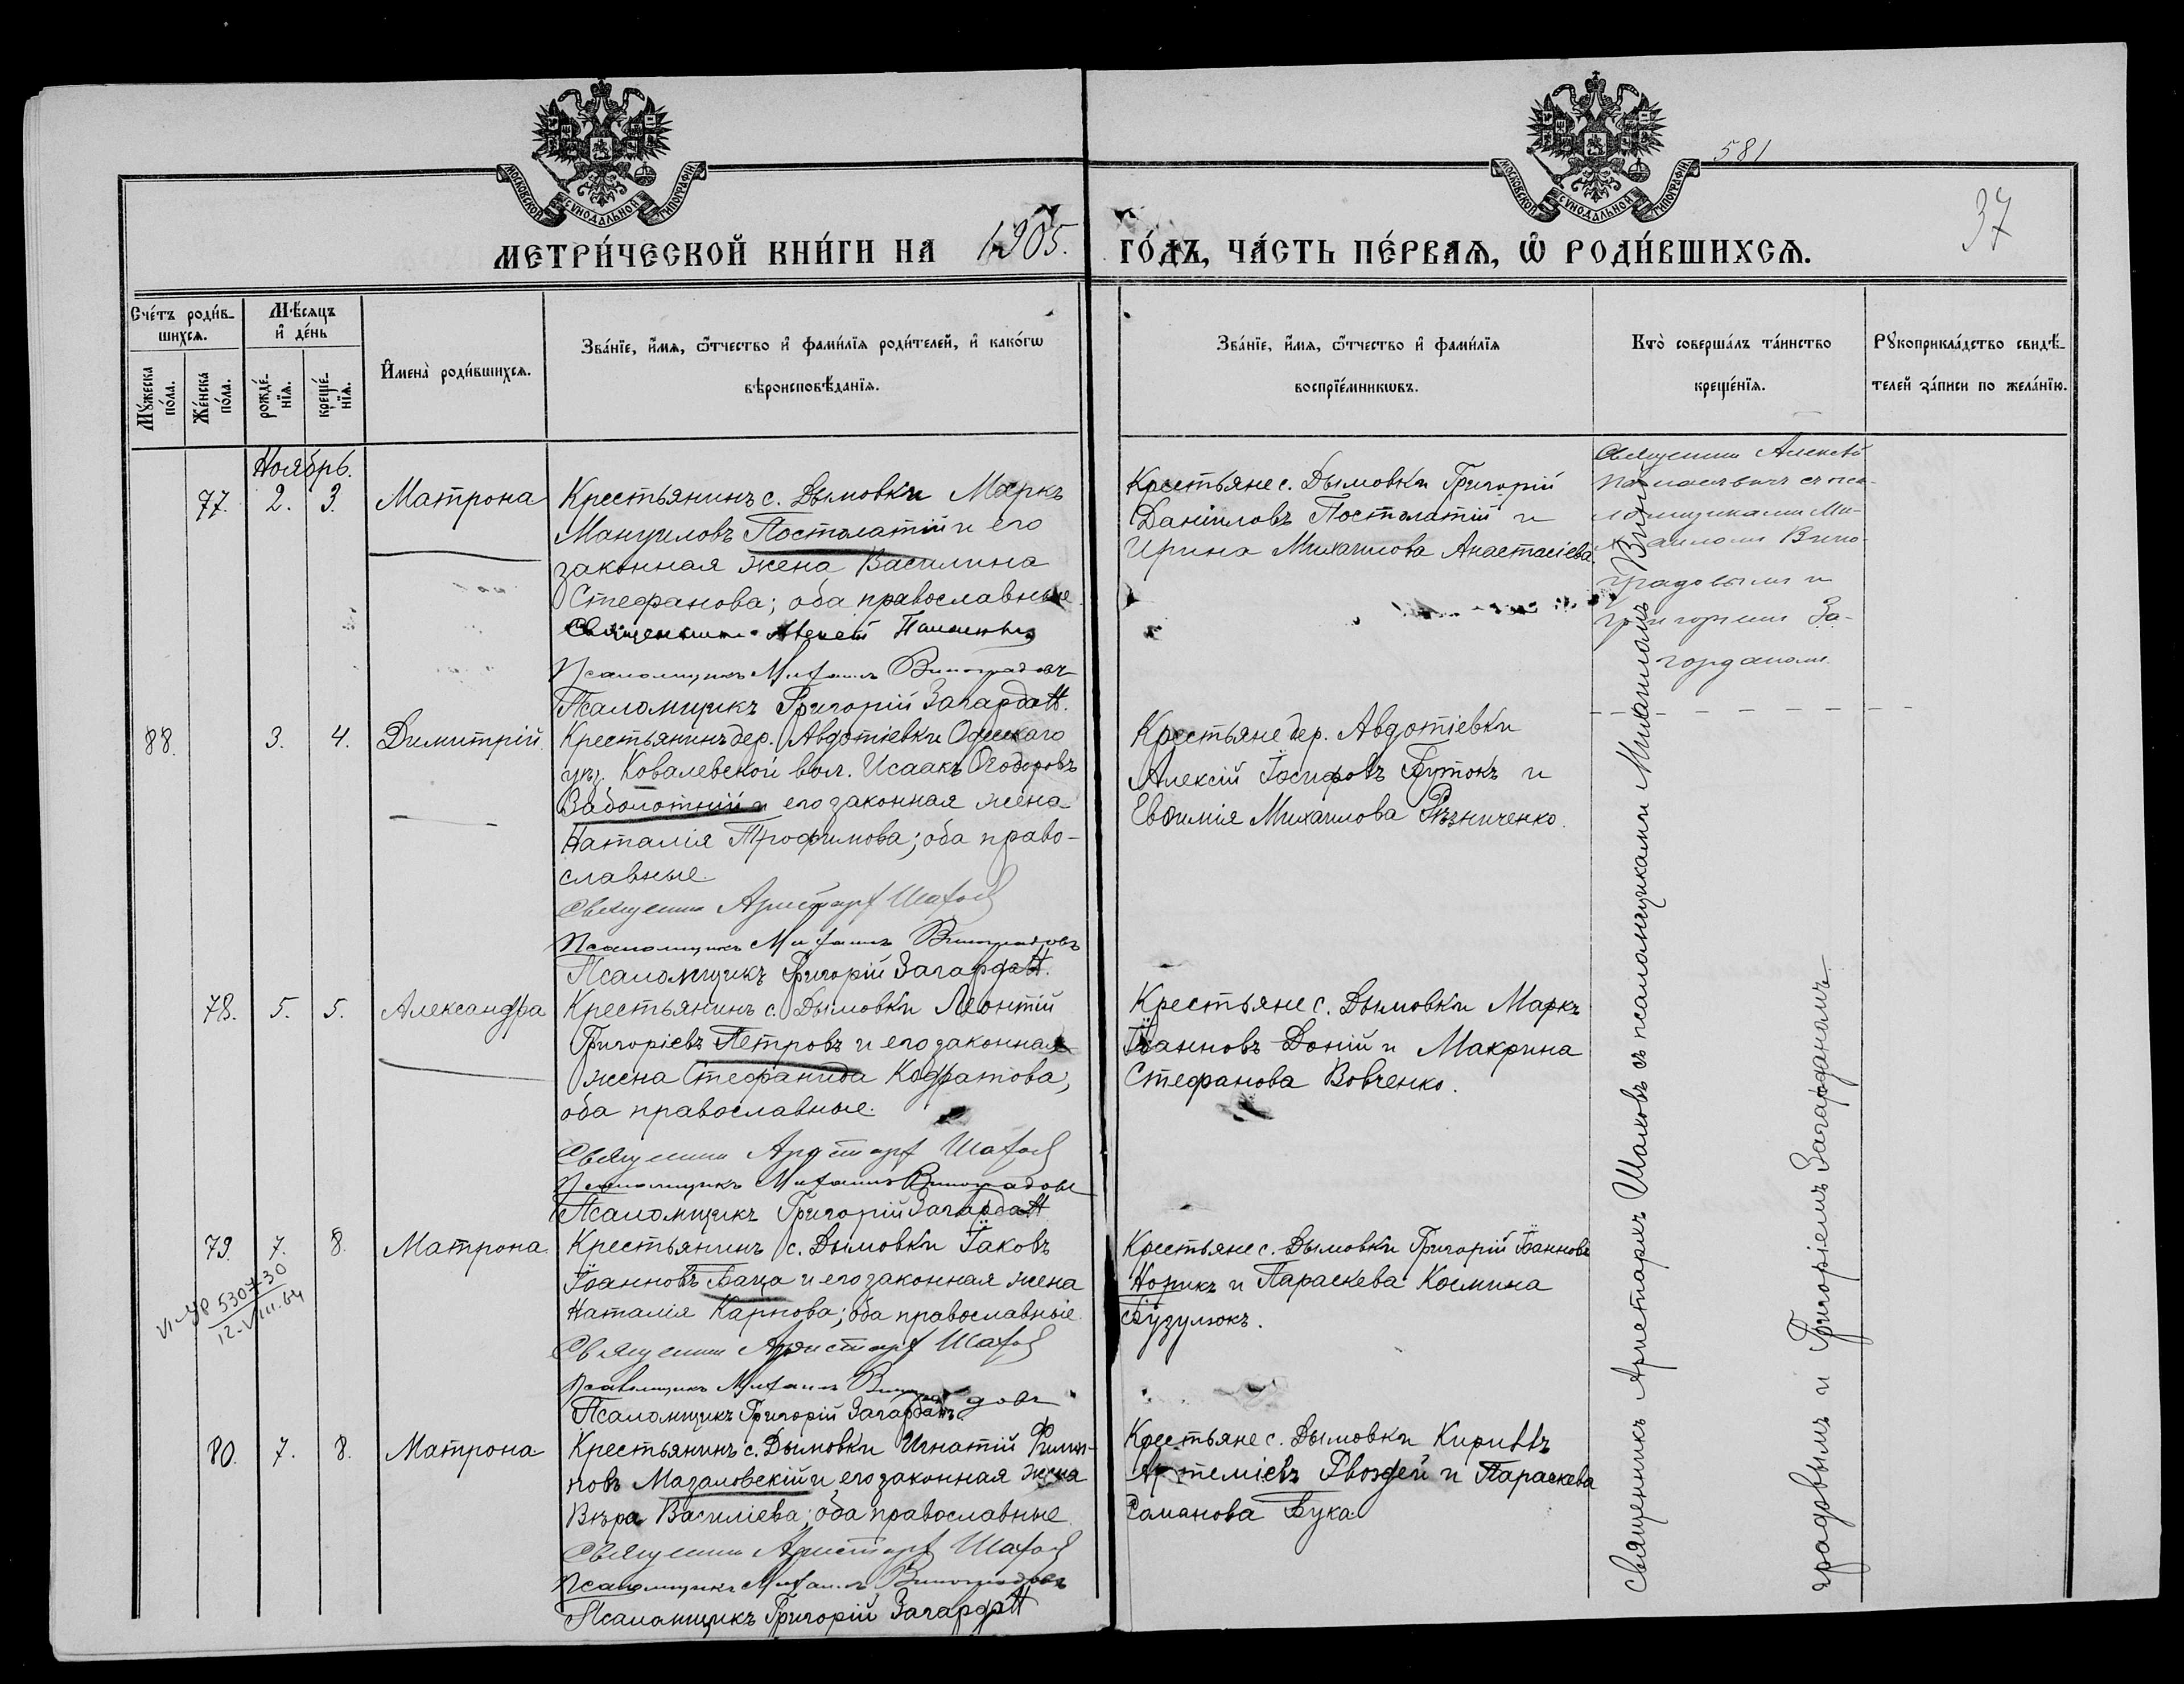 МОСКОВСКОЙ СѴНОДАЛЬНОЙ ТИПОГРАФІИ
МОСКОВСКОЙ СѴНОДАЛЬНОЙ ТИПОГРАФІИ
581
37
МЕТРИ́ЧЕСКОЙ КНИ́ГИ НА 1905. ГО́ДЪ, ЧА́СТЬ ПЕ́РВАѦ, Ѡ РОДИ́ВШИХСѦ.
Сче́тъ роди́в-
шихсѧ.
Мꙋ́жеска по́ла.
Же́нска по́ла.
Мѣ́сѧцъ
и҆ де́нь
рожде́-
нїѧ.
креще́-
нїѧ.
И҆мена̀ роди́вшихсѧ.
Зва́нїе, и҆́мѧ, ѻ҆́тчество и҆ фами́лїѧ роди́телей, и҆ како́гѡ
вѣроисповѣ́данїѧ.
Зва́нїе, и҆́мѧ, ѻ҆́тчество и҆ фами́лїѧ
воспрїе́мникѡвъ.
Кто̀ соверша́лъ та́инство
креще́нїѧ.
Рꙋкоприкла́дство свидѣ́-
телей за́писи по жела́нїю.
Ноябрь.
77. 2. 3. Матрона
Крестьянинъ с. Дымовки Маркъ
Мануиловъ Постолатій и его
законная жена Василина
Стефанова; оба православные
Священникъ Алексѣй
Псаломщикъ Михаилъ Виноградовъ
Псаломщикъ Григорій Загарданъ.
Крестьяне с. Дымовки Григорій
Даніиловъ Постолатій и
Ирина Михаилова Анастасіева.
Священникъ Алексѣй
съ пса-
ломщиками Ми-
хаиломъ Вино-
градовымъ и
Григоріемъ За-
горданомъ.
88. 3. 4. Димитрій.
Крестьянинъ дер. Авдотіевки Одесскаго
уѣз. Ковалевской вол. Исаакъ Ѳеодоровъ
Заболотній и его законная жена
Наталія Трофимова; оба право-
славные.
Священникъ Аристархъ Шаховъ
Псаломщикъ Михаилъ Виноградовъ
Псаломщикъ Григорій Загарданъ.
Крестьяне дер. Авдотіевки
Алексій Іосифовъ Бутокъ и
Евѳимія Михаилова Рѣзниченко.
78. 5. 5. Александра
Крестьянинъ с. Дымовки Леонтій
Григоріевъ Петровъ и его законная
жена Стефанида Кодратова;
оба православные.
Священникъ Аристархъ Шаховъ
Псаломщикъ Михаилъ Виноградовъ
Псаломщикъ Григорій Загарданъ
Крестьяне с. Дымовки Маркъ
Іоанновъ Доній и Макрина
Стефанова Вовченко.
79. 7. 8. Матрона
VI-ЯР 5307-30
12-VIII.64
Крестьянинъ с. Дымовки Іаковъ
Іоанновъ Баца и его законная жена
Наталія Карпова; оба православные
Священникъ Аристархъ Шаховъ
Псаломщикъ Михаилъ Виноградовъ
Псаломщикъ Григорій Загарданъ
Крестьяне с. Дымовки Григорій Іоанновъ
Норикъ и Параскева Космина
Бузулюкъ.
80. 7. 8. Матрона
Крестьянинъ с. Дымовки Игнатій Филип-
повъ Мазаловскій и его законная жена
Вѣра Василіева; оба православные
Священникъ Аристархъ Шаховъ
Псаломщикъ Михаилъ Виноградовъ
Псаломщикъ Григорій Загарданъ
Крестьяне с. Дымовки Кириллъ
Артеміевъ Гвоздей и Параскева
Романова Бука
Священникъ Аристархъ Шаховъ съ псаломщиками Михаиломъ Вино-
градовымъ и Григоріемъ Загарданомъ